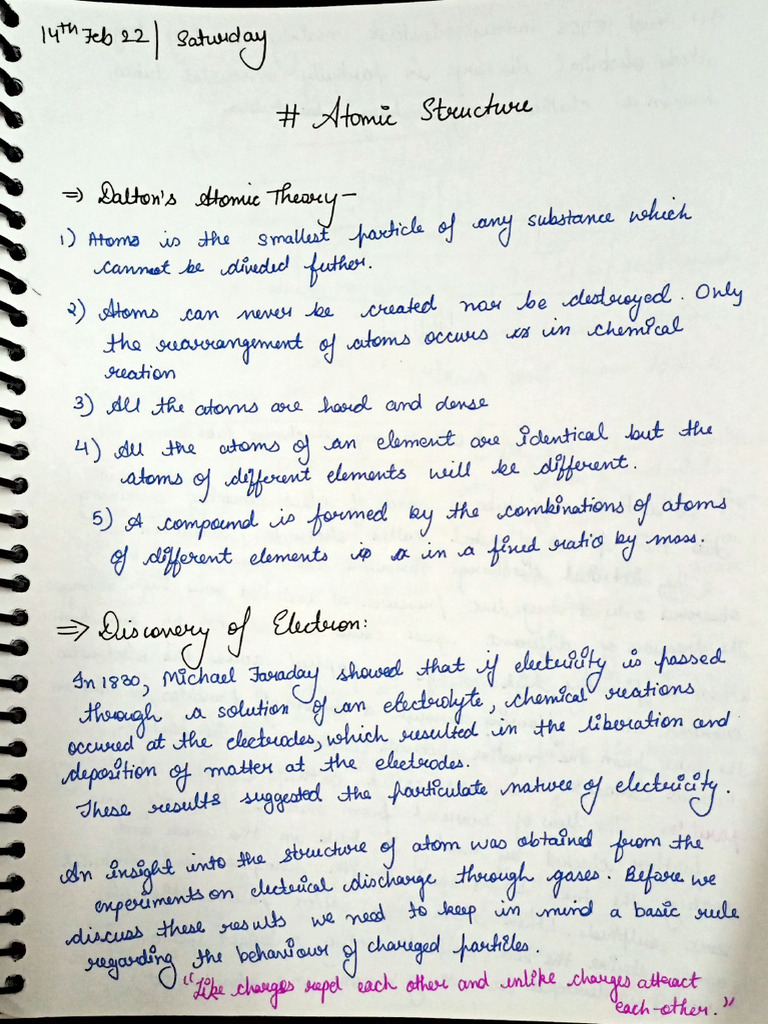 14th Feb 22 | Saturday
# Atomic Structure
⇒ Dalton's Atomic Theory -
1) Atoms is the smallest particle of any substance which
cannot be divided futher.
2) Atoms can never be created nor be destroyed. Only
the rearrangement of atoms occurs in chemical
reation
3) All the atoms are hard and dense
4) All the atoms of an element are identical but the
atoms of different elements will be different.
5) A compound is formed by the combinations of atoms
of different elements in a fixed ratio by mass.
⇒ Discovery of Electron:
In 1830, Michael Faraday showed that if electricity is passed
through a solution of an electrolyte, chemical reations
occured at the electrodes, which resulted in the liberation and
deposition of matter at the electrodes.
These results suggested the particulate nature of electricity.
An insight into the structure of atom was obtained from the
experiments on electrical discharge through gases. Before we
discuss these results we need to keep in mind a basic rule
regarding the behaviour of chareged particles.
"Like charges repel each other and unlike charges atteract
each-other."